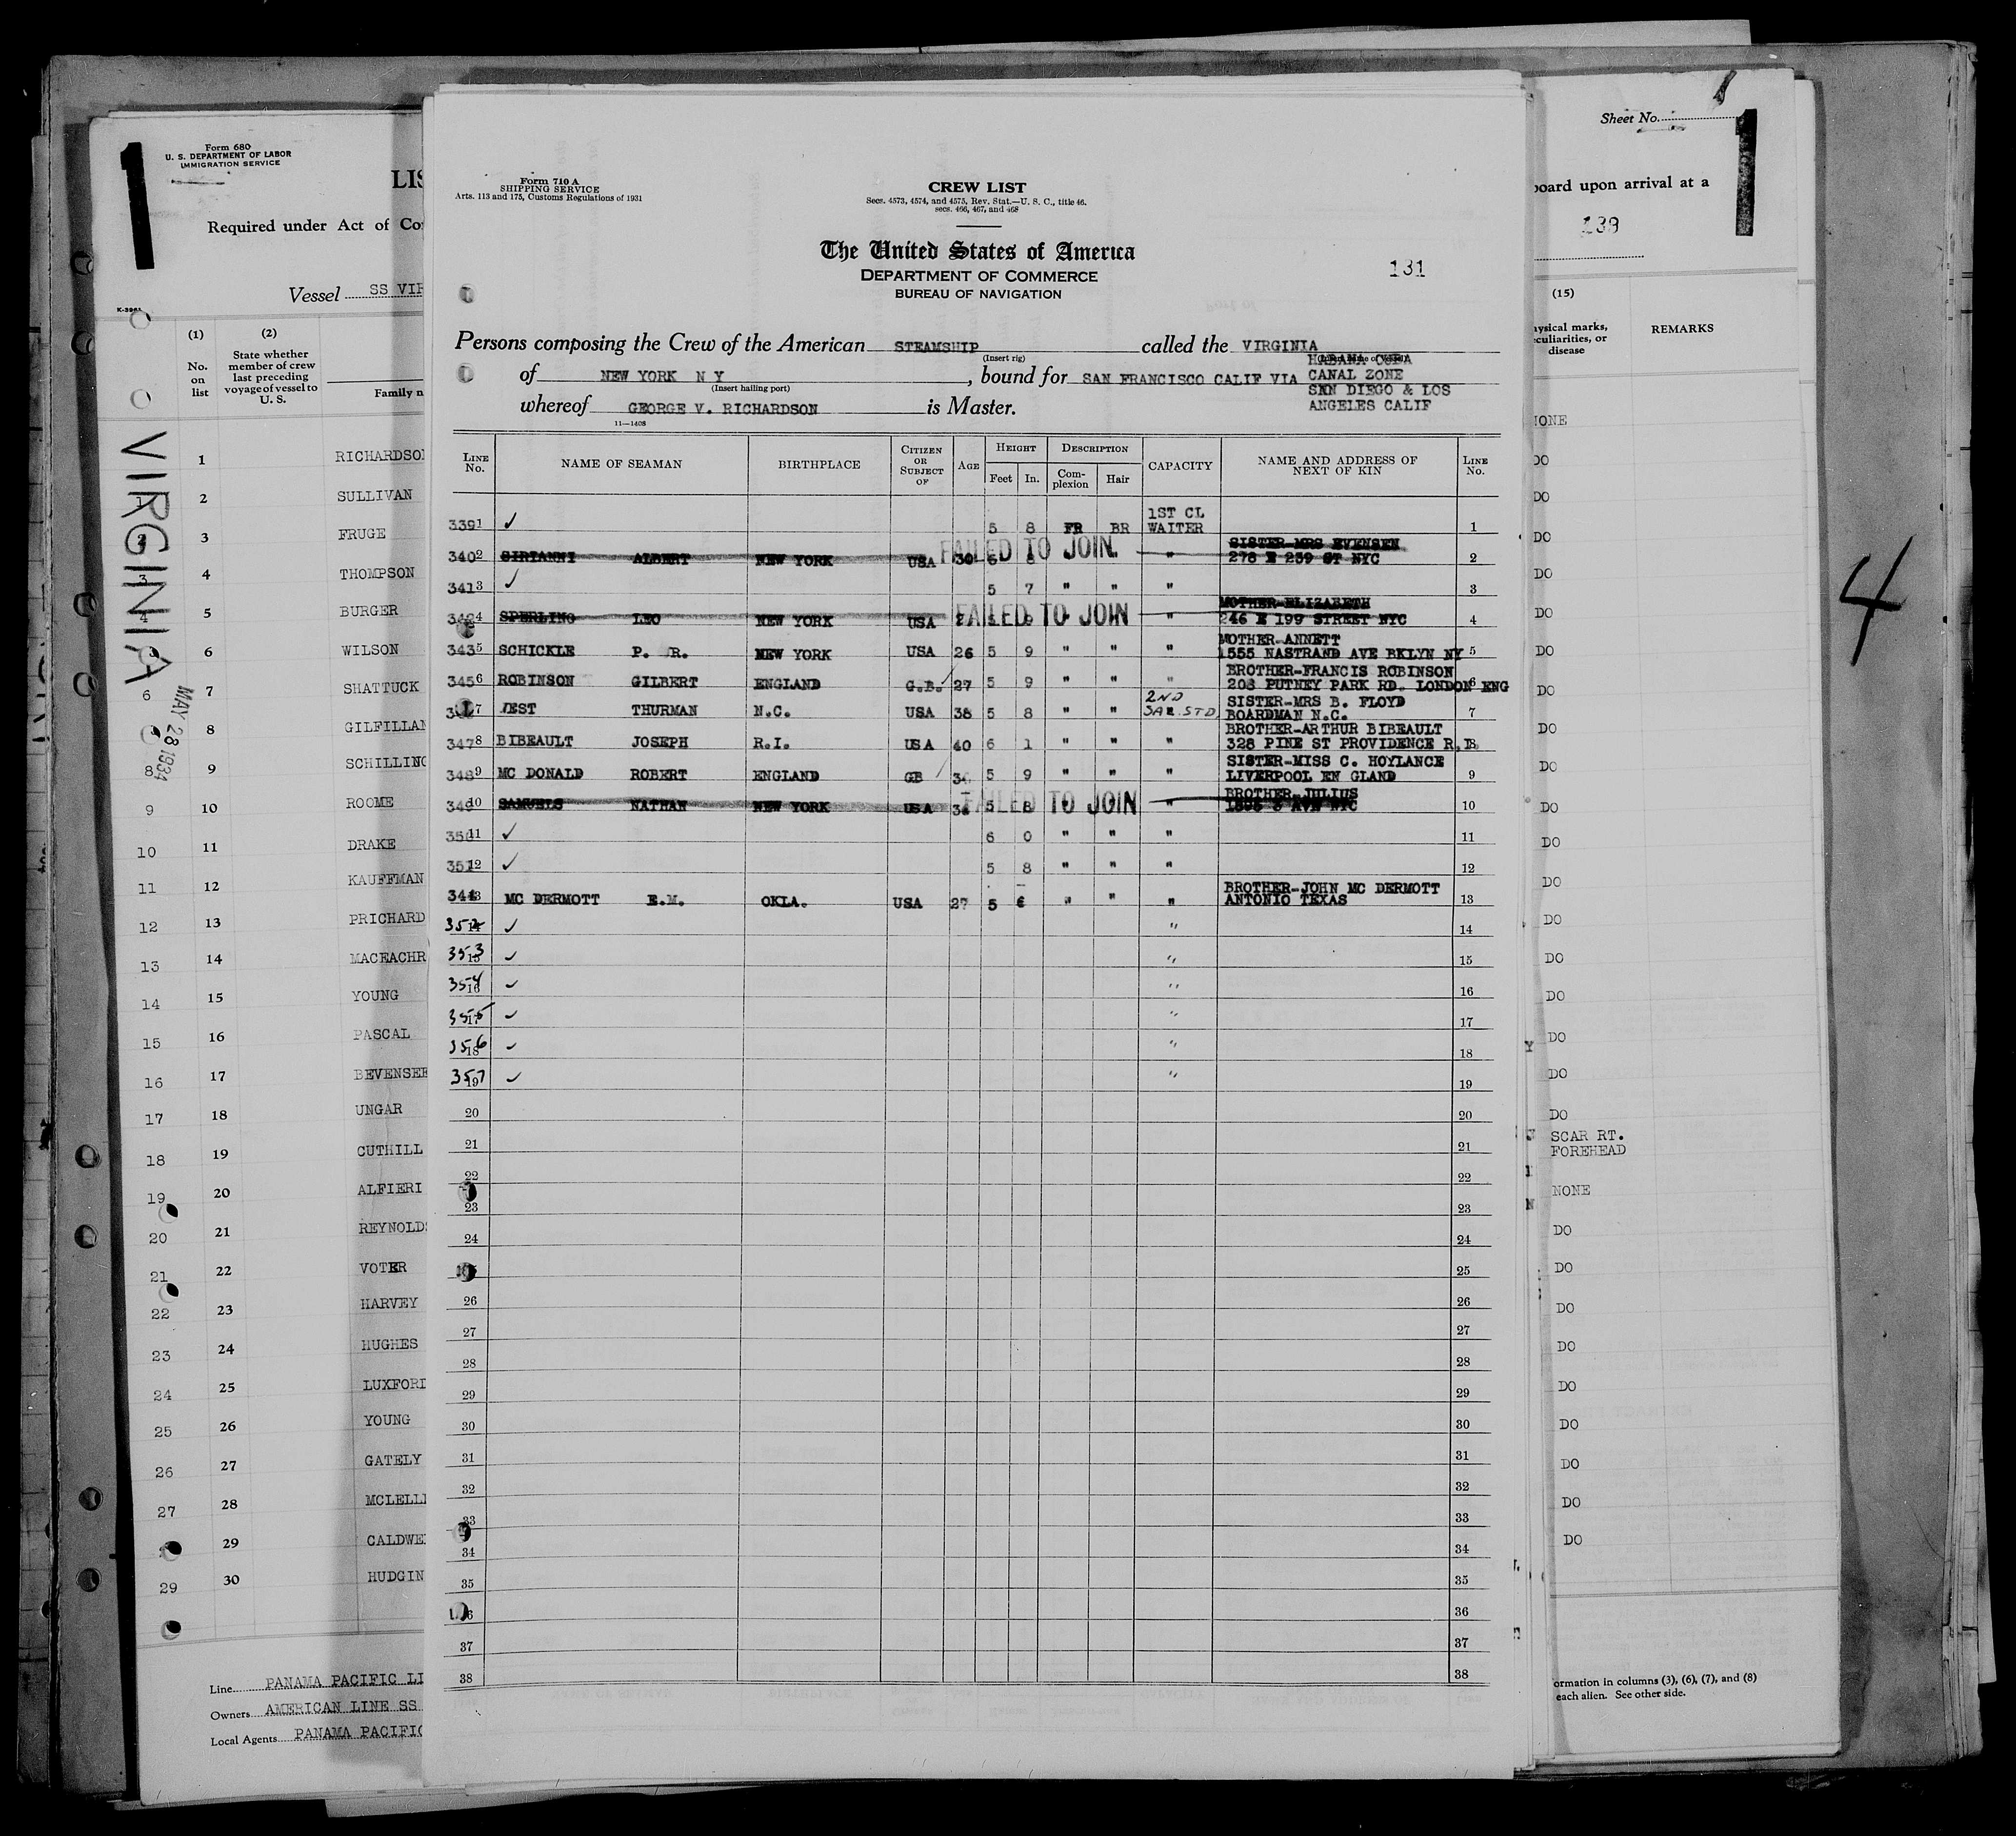 Form 680
U. S. DEPARTMENT OF LABOR
IMMIGRATION SERVICE
LIS
Required under Act of Co
Vessel SS VIR
(1) (2)
No. on list
State whether member of crew last preceding voyage of vessel to U. S.
Family n
VIRGINIA
MAY 28 1934
1 RICHARDSON
1 2 SULLIVAN
2 3 FRUGE
3 4 THOMPSON
4 5 BURGER
6 WILSON
6 7 SHATTUCK
8 GILFILLAN
8 9 SCHILLING
9 10 ROOME
10 11 DRAKE
11 12 KAUFFMAN
12 13 PRICHARD
13 14 MACEACHR
14 15 YOUNG
15 16 PASCAL
16 17 BEVENSEE
17 18 UNGAR
18 19 CUTHILL
19 20 ALFIERI
20 21 REYNOLDS
21 22 VOTER
22 23 HARVEY
23 24 HUGHES
24 25 LUXFORD
25 26 YOUNG
26 27 GATELY
27 28 MCLELL
29 CALDWE
29 30 HUDGIN
Line PANAMA PACIFIC LI
Owners AMERICAN LINE SS
Local Agents PANAMA PACIFIC
Form 710 A
SHIPPING SERVICE
Arts. 113 and 175, Customs Regulations of 1931
CREW LIST
Secs. 4573, 4574, and 4575, Rev. Stat.—U. S. C., title 46.
secs. 466, 467, and 468
The United States of America
DEPARTMENT OF COMMERCE
BUREAU OF NAVIGATION
131
Persons composing the Crew of the American STEAMSHIP called the VIRGINIA
(Insert rig)
HABANA CUBA
of NEW YORK N Y, bound for SAN FRANCISCO CALIF VIA CANAL ZONE
(Insert hailing port)
SAN DIEGO & LOS
whereof GEORGE V. RICHARDSON is Master. ANGELES CALIF
11—1408
LINE No. NAME OF SEAMAN BIRTHPLACE CITIZEN OR SUBJECT OF AGE HEIGHT Feet In. DESCRIPTION Complexion Hair CAPACITY NAME AND ADDRESS OF NEXT OF KIN LINE No.
339 1 ✓ 5 8 FR BR 1ST CL WAITER 1
340 2 SIRIANNI ALBERT NEW YORK USA 30 FAILED TO JOIN " SISTER-MRS EVENSEN 278 E 239 ST NYC 2
341 3 ✓ 5 7 " " " 3
4 SPERLING LEO NEW YORK USA FAILED TO JOIN " MOTHER-ELIZABETH 246 E 199 STREET NYC 4
343 5 SCHICKLE P. R. NEW YORK USA 26 5 9 " " " MOTHER-ANNETT 1555 NASTRAND AVE BKLYN NY 5
345 6 ROBINSON GILBERT ENGLAND G.B. 27 5 9 " " " BROTHER-FRANCIS ROBINSON 208 PUTNEY PARK RD. LONDON ENG 6
7 THURMAN N.C. USA 38 5 8 " " 2ND SAL STD SISTER-MRS B. FLOYD BOARDMAN N.C. 7
347 8 BIBEAULT JOSEPH R.I. USA 40 6 1 " " " BROTHER-ARTHUR BIBEAULT 328 PINE ST PROVIDENCE R.I. 8
348 9 MC DONALD ROBERT ENGLAND GB 5 9 " " " SISTER-MISS C. HOYLANCE LIVERPOOL EN GLAND 9
349 10 SAMUELS NATHAN NEW YORK USA 5 8 FAILED TO JOIN " BROTHER-JULIUS 10
350 11 ✓ 6 0 " " " 11
351 12 ✓ 5 8 " " " 12
344 13 MC DERMOTT E.M. OKLA. USA 27 5 6 " " " BROTHER-JOHN MC DERMOTT ANTONIO TEXAS 13
352 14 ✓ " 14
353 15 ✓ " 15
354 16 ✓ " 16
355 17 ✓ " 17
356 18 ✓ " 18
357 19 ✓ " 19
20 20
21 21
22 22
23 23
24 24
25
26 26
27 27
28 28
29 29
30 30
31 31
32 32
33 33
34 34
35 35
36 36
37 37
38 38
Sheet No.
1
board upon arrival at a
139
(15)
ysical marks, culiarities, or disease
REMARKS
NONE
DO
DO
DO
DO
DO
DO
DO
DO
DO
DO
DO
DO
DO
DO
DO
DO
DO
DO
SCAR RT.
FOREHEAD
NONE
DO
DO
DO
DO
DO
DO
DO
DO
DO
ormation in columns (3), (6), (7), and (8)
each alien. See other side.
4